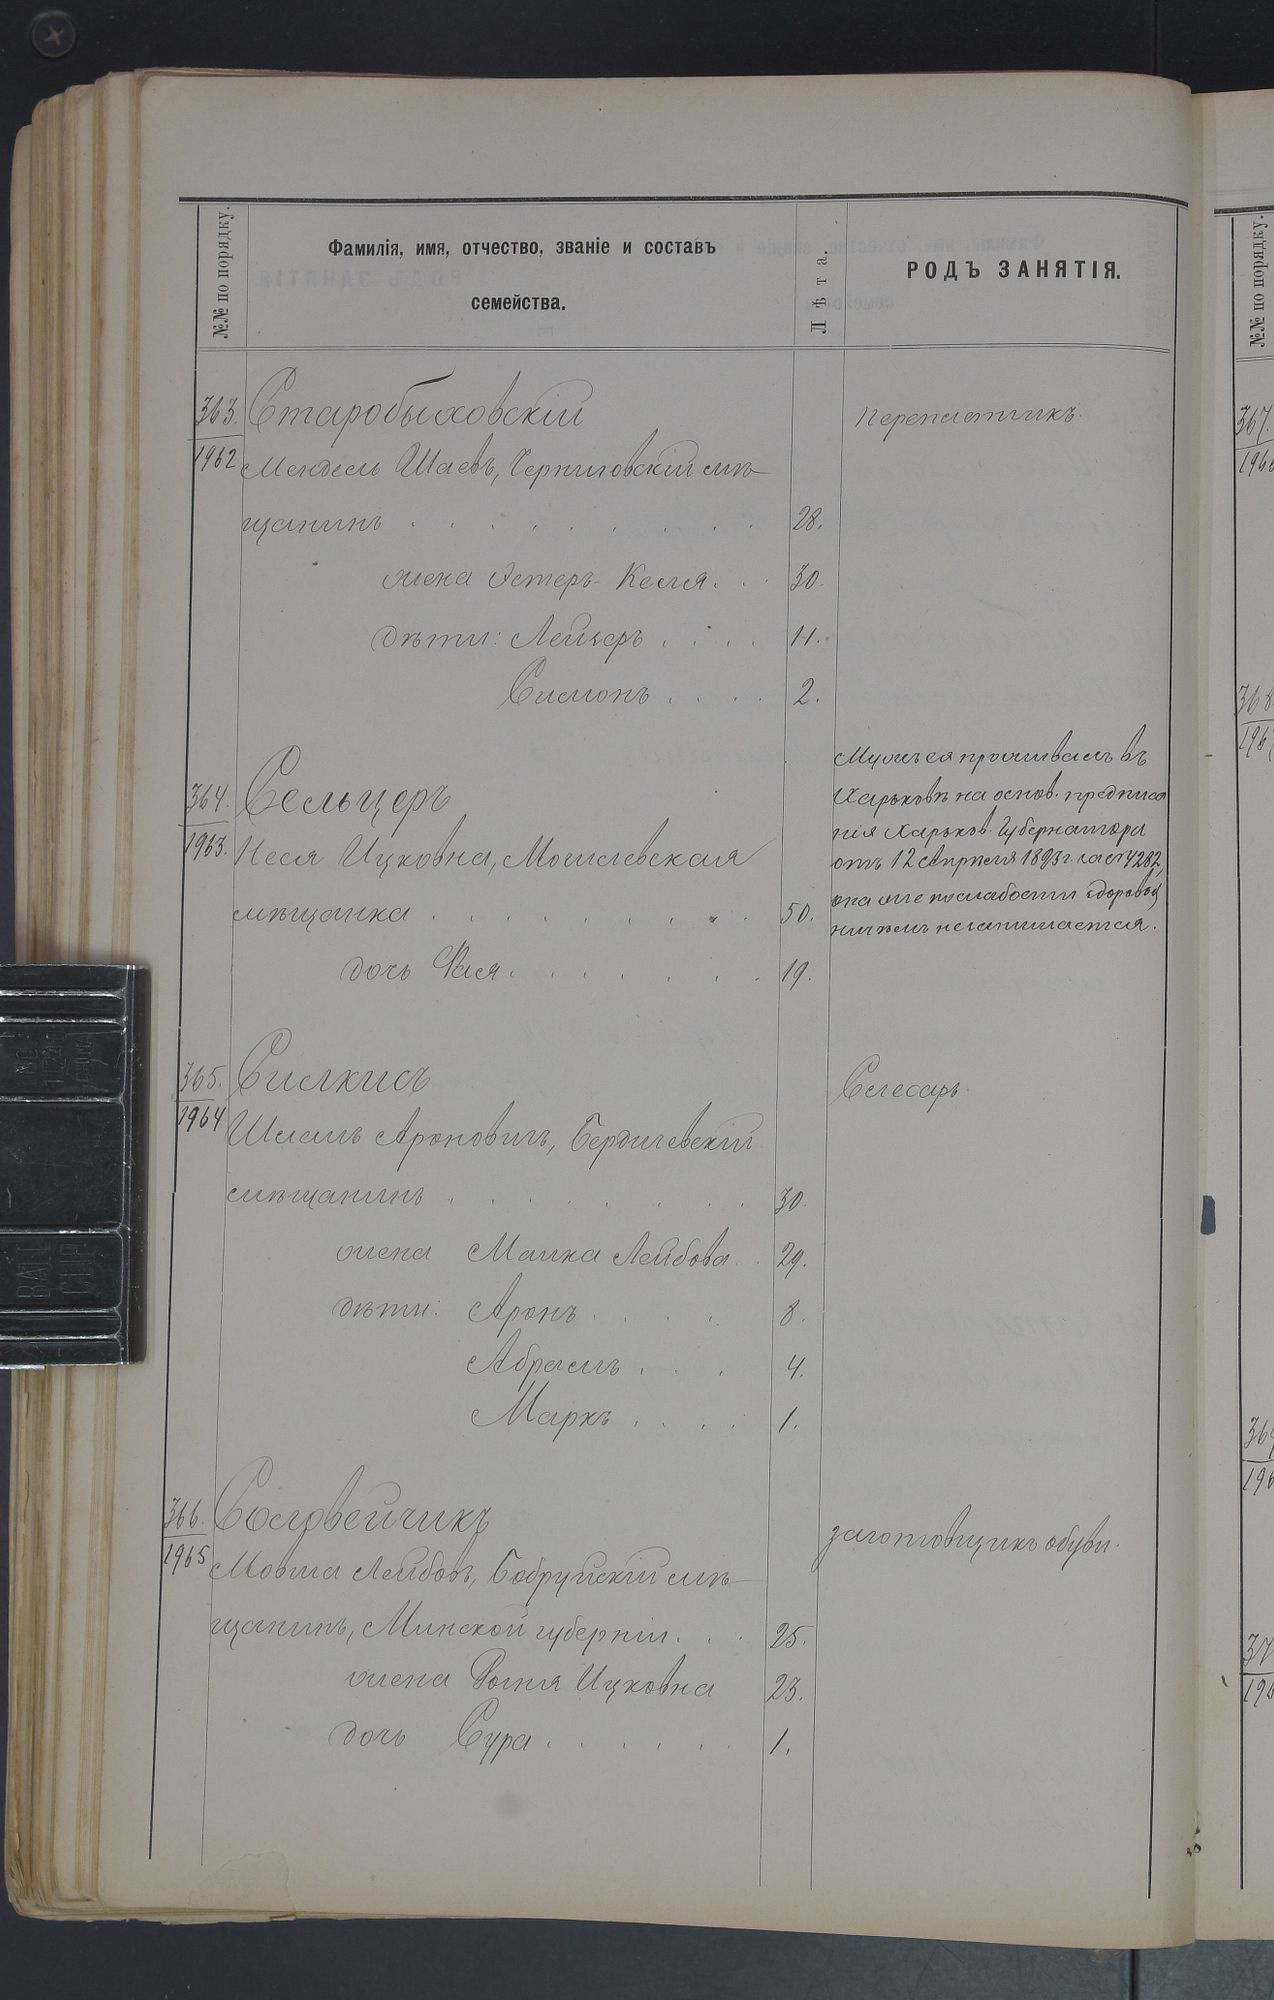 №№ по порядку.
Фамилія, имя, отчество, званіе и составъ
семейства.
Лѣта.
РОДЪ ЗАНЯТІЯ.
363. Старобыховскій переплетчикъ.
1962 Мендель Шаевъ, Черниговскій мѣ-
щанинъ 28.
жена Эстеръ-Келля 30.
дѣти: Лейзеръ 11.
Симонъ 2.
364. Сельцеръ
1963. Неся Ицковна, Могилевская
мѣщанка 50.
дочь Фася 19.
Мужъ ея проживалъ въ
Харьковѣ на основ. предписа
нія Харьков. Губернатора
отъ 12 Апрѣля 1893 г. за № 4282,
она же по слабости здоровья
ничѣмъ не занимается.
365. Силкисъ Слесарь.
1964 Шлемъ Ароновичъ, Бердичевскій
мѣщанинъ 30.
жена Малка Лейбова 29.
дѣти: Аронъ 8.
Абрамъ 4.
Маркъ 1.
366. Соловейчикъ заготовщикъ обуви.
1965 Мовша Лейбовъ, Бобруйскій мѣ-
щанинъ, Минской губерніи 25.
жена Ицковна 23.
дочь Сура 1.
№№ по порядку.
367.
368